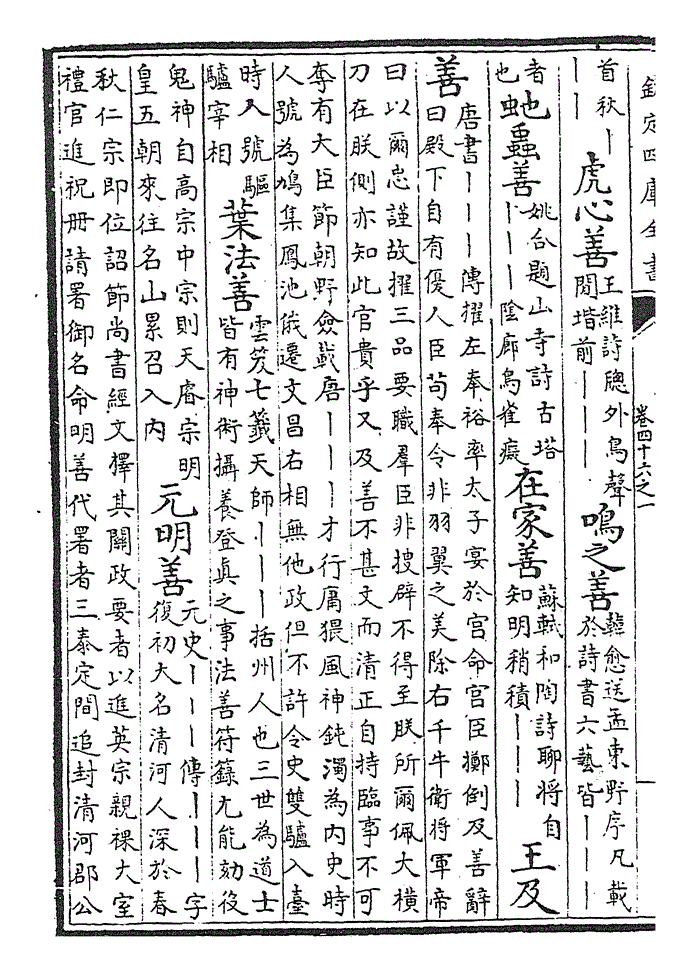 欽定四庫全書 卷四十六之一
首秋丨
丨丨
虎心善
王維詩牎外鳥聲
閒堦前丨丨丨
鳴之善
韓愈送孟東野序凡載
於詩書六藝皆丨丨丨
者
也
虵蟲善
姚合題山寺詩古塔
丨丨丨陰廊鳥雀癡
在家善
蘇軾和陶詩聊將自
知明稍積丨丨丨
王及
善
唐書丨丨丨傳擢左奉裕率太子宴於宫命宫臣擲倒及善辭
曰殿下自有優人臣苟奉令非羽翼之美除右千牛衛將軍帝
曰以爾忠謹故擢三品要職羣臣非搜辟不得至朕所爾佩大横
刀在朕側亦知此官貴乎又及善不甚文而清正自持臨事不可
奪有大臣節朝野僉載唐丨丨丨才行庸猥風神鈍濁為内史時
人號為鳩集鳳池俄遷文昌右相無他政但不許令史雙驢入臺
時人號驅
驢宰相
葉法善
雲笈七籤天師丨丨丨括州人也三世為道士
皆有神術攝養登真之事法善符籙尤能劾役
鬼神自高宗中宗則天睿宗明
皇五朝來往名山累召入内
元明善
元史丨丨丨傳丨丨丨字
復初大名清河人深於春
秋仁宗即位詔節尚書經文擇其關政要者以進英宗親祼大室
禮官進祝冊請署御名命明善代署者三泰定間追封清河郡公